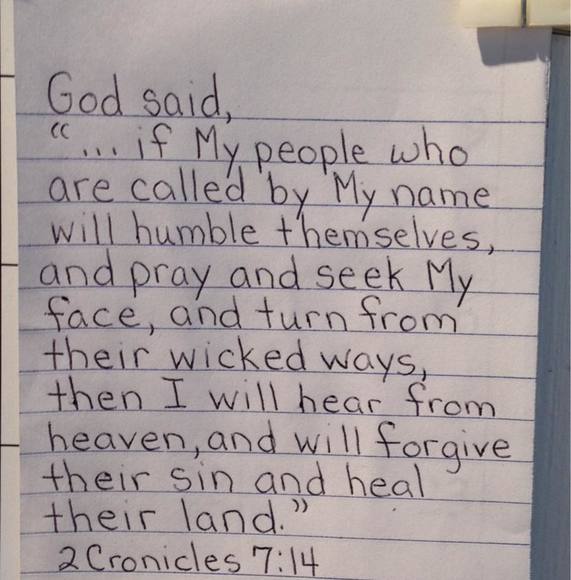 God said,
“... if My people who
are called by My name
will humble themselves,
and pray and seek My
face, and turn from
their wicked ways,
then I will hear from
heaven, and will forgive
their sin and heal
their land.”
2 Cronicles 7:14